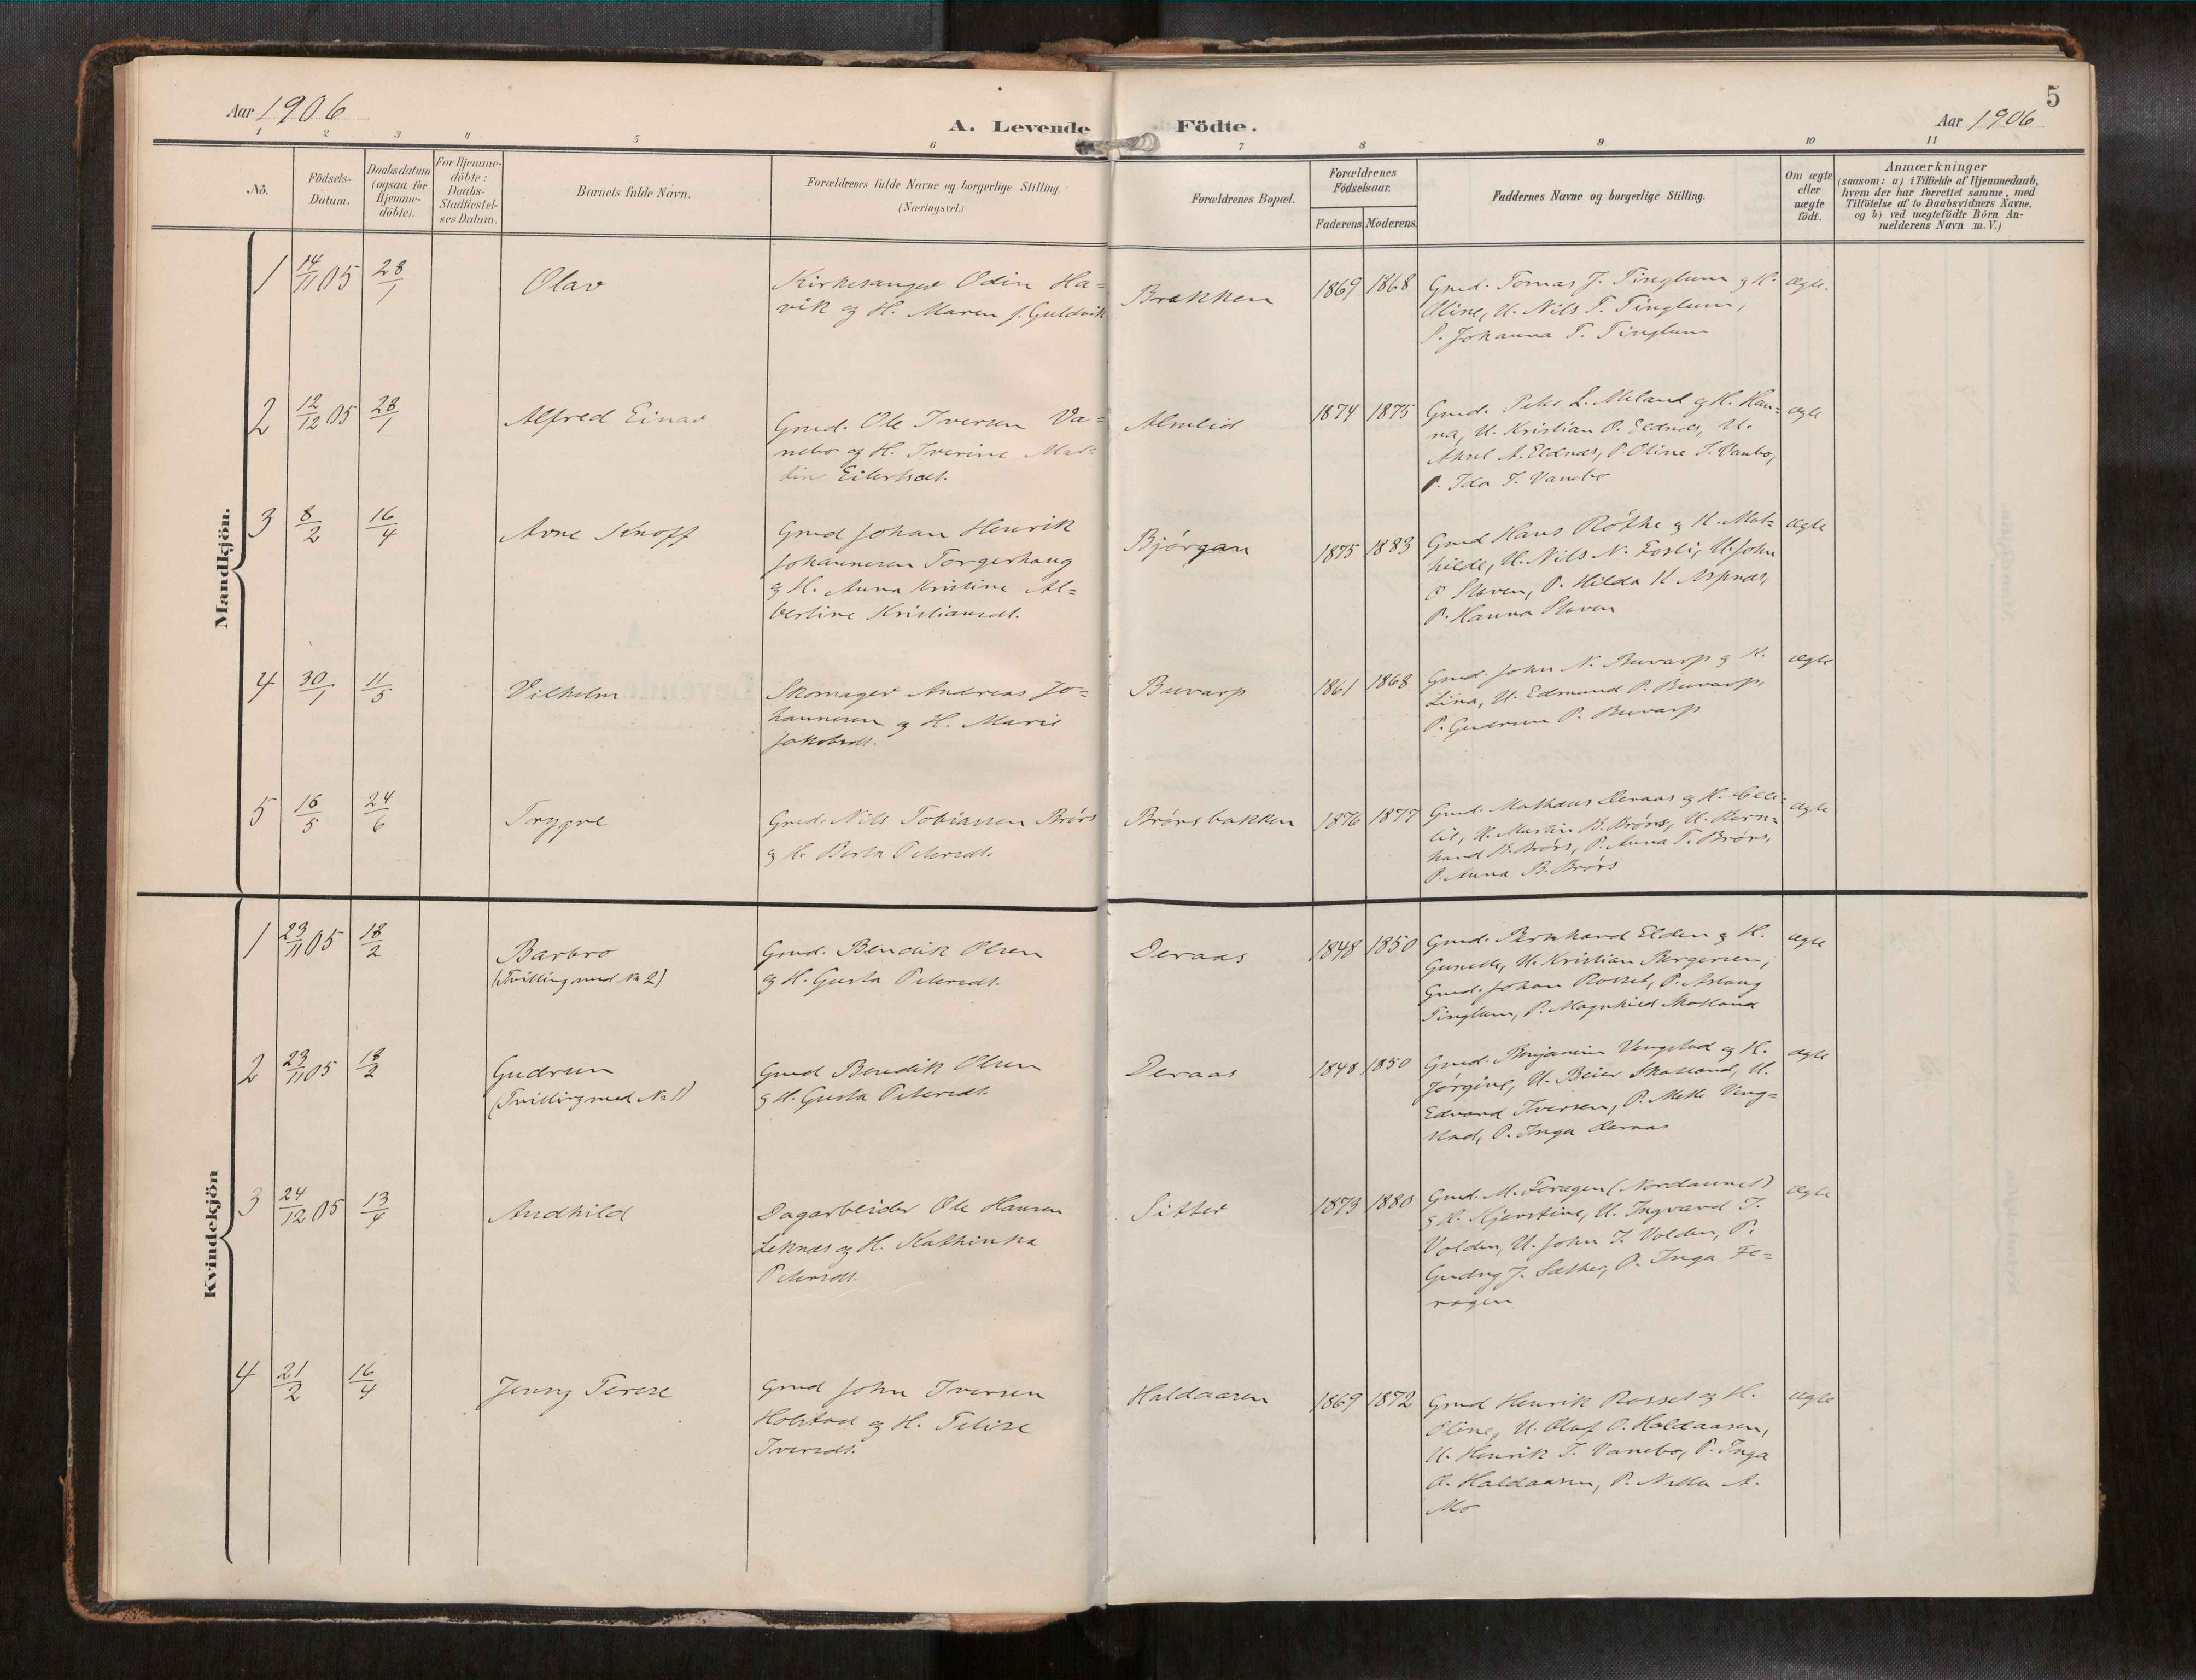 Aar 1906
A. Levende Födte.
5
Aar 1906
1 2 3 4 5 6 7 8 9 10 11
No.
Födsels-
Datum.
Daabsdatum
(ogsaa for
Hjemme-
döbte).
For Hjemme-
döbte:
Daabs-
Stadfæstel-
ses Datum.
Barnets fulde Navn.
Forældrenes fulde Navne og borgerlige Stilling.
(Næringsvei.)
Forældrenes Bopæl.
Forældrenes
Födselsaar.
Faderens. Moderens.
Faddernes Navne og borgerlige Stilling.
Om ægte
eller
uægte
födt.
Anmærkninger
(saasom: a) i Tilfælde af Hjemmedaab,
hvem der har forrettet samme, med
Tilföielse af to Daabsvidners Navne.
og b) ved uægtefödte Börn An-
melderens Navn m. V.)
Mandkjön.
1 14/11 05 28/1
Olav
Kirkesanger Odin Ha-
vik og H. Maren f. Guldvik
Brækken
1869 1868
Gmd. Tomas J. Tinglum og H.
Oline, U. Nils T. Tinglum,
P. Johanna T. Tinglum
ægte.
2 12/12 05 28/1
Alfred Einar
Gmd. Ole Iversen Va-
nebo og H. Iverine Mar-
tine Eilertsdt.
Almlid
1874 1875
Gmd. Peter L. Meland og H. Han-
na, U. Kristian P. Eldnes, U.
Aksel A. Eldnes, P. Oline I. Vanebo,
P. Ida I. Vanebo
ægte
3 8/2 16/4
Arne Knoff
Gmd Johan Henrik
Johannesen Torgershaug
og H. Anna Kristine Al-
bertine Kristiansdt.
Bjørgan
1875 1883
Gmd Hans Röthe og H. Mat-
hilde, U. Nils N. Fosli, U. John
O Staven, P. Hilda H Aspnes,
P. Hanna Staven
ægte
4 30/1 11/5
Vilhelm
Skomager Andreas Jo-
hannesen og H. Marie
Jakobsdt.
Buvarp
1861 1868
Gmd. John N. Buvarp og H.
Lina, U. Edmund P. Buvarp,
P. Gudrun P. Buvarp
ægte
5 16/5 24/6
Trygve
Gmd. Nils Tobiassen Brørs
og H. Berta Petersdt.
Brørsbakken
1876 1877
Gmd. Mathæus Deraas og H. Ceci-
lie, U. Martin B. Brørs, U. Bern-
hard B. Brørs, P. Anna T. Brørs,
P. Anna B. Brørs
ægte
Kvindekjön
1 23/11 05 18/2
Barbro
(Tvilling med No 2)
Gmd. Bendik Olsen
og H. Gusta Petersdt.
Deraas
1848 1850
Gmd. Bernhard Elden og H.
Gunelle, U. Kristian Bergersen,
Gmd. Johan Rosset, P. Aslaug
Tinglum, P. Magnhild Skotland
ægte
2 23/11 05 18/2
Gudrun
(Tvilling med No 1)
Gmd Bendik Olsen
og H. Gusta Petersdt.
Deraas
1848 1850
Gmd. Benjamin Vengstad og H.
Jørgine, U. Beier Skotland, U.
Edvard Iversen, P. Mette Veng-
stad, P. Inga Deraas
ægte
3 24/12 05 13/4
Audhild
Dagarbeider Ole Hansen
Leknes og H. Kathinka
Petersdt.
Sitter
1873 1880
Gmd. M. Feragen (Nordaunet)
og H. Kjerstine, U. Ingvard I.
Volden, U. John I. Volden, P.
Gudny J. Sæther, P. Inga Fe-
ragen
ægte
4 21/2 16/4
Jenny Terese
Gmd John Iversen
Holstad og H. Felise
Iversdt.
Haldaasen
1869 1872
Gmd Henrik Rosset og H.
Oline, U. Olaf O. Haldaasen,
U. Henrik I. Vanebo, P. Inga
O. Haldaasen, P. Nella A.
Mo
ægte